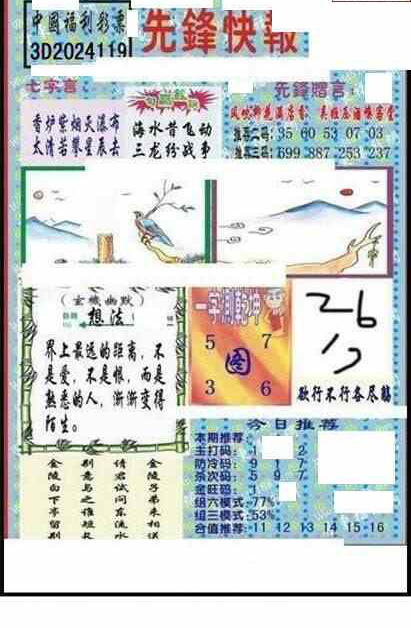 中國福利彩票
3D2024119
先鋒快報
七字言:
先鋒贈言:
香炉紫烟灭瀑布
太清若攀星辰去
海水昔飞动
三龙纷战争
风吹柳花满店香
推荐二码: 35 60 53 07 03
推荐三码: 699 887 253 237
(玄機幽默)
想法
界上最远的距离，不
是爱，不是恨，而是
熟悉的人，渐渐变得
陌生。
一字測乾坤
5 7
图
3 6
26
欲行不行各尽觞
金陵子弟来相送
请君试问东流水
别意与之谁短长
金陵白下亭留别
今日推荐
本期推荐
主打码: 1 2
防冷码: 9 1 7
杀次码: 5 9 7
金旺码: 1
组六模式:77%
组三模式:53%
合值推荐:11 12 13 14 15 16